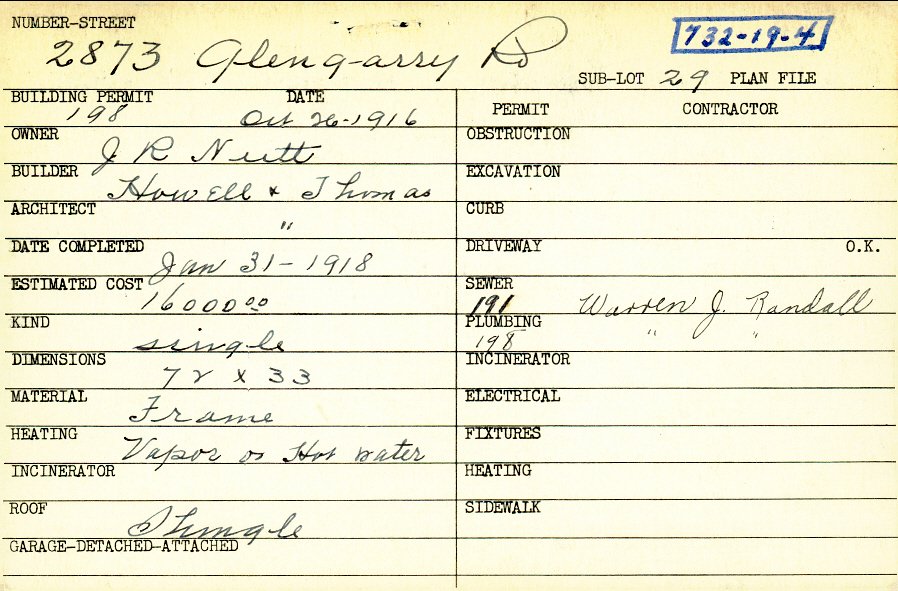 NUMBER-STREET
2873 Glengarry Rd
732-19-4
SUB-LOT 29 PLAN FILE
BUILDING PERMIT DATE
198 Oct 26-1916
OWNER
J R Nutt
BUILDER
Howell & Thomas
ARCHITECT
"
DATE COMPLETED
Jan 31-1918
ESTIMATED COST
16000 00
KIND
single
DIMENSIONS
72 x 33
MATERIAL
Frame
HEATING
Vapor or Hot water
INCINERATOR
ROOF
Shingle
GARAGE-DETACHED-ATTACHED
PERMIT CONTRACTOR
OBSTRUCTION
EXCAVATION
CURB
DRIVEWAY O.K.
SEWER
191 Warren J. Randall
PLUMBING
198 " "
INCINERATOR
ELECTRICAL
FIXTURES
HEATING
SIDEWALK